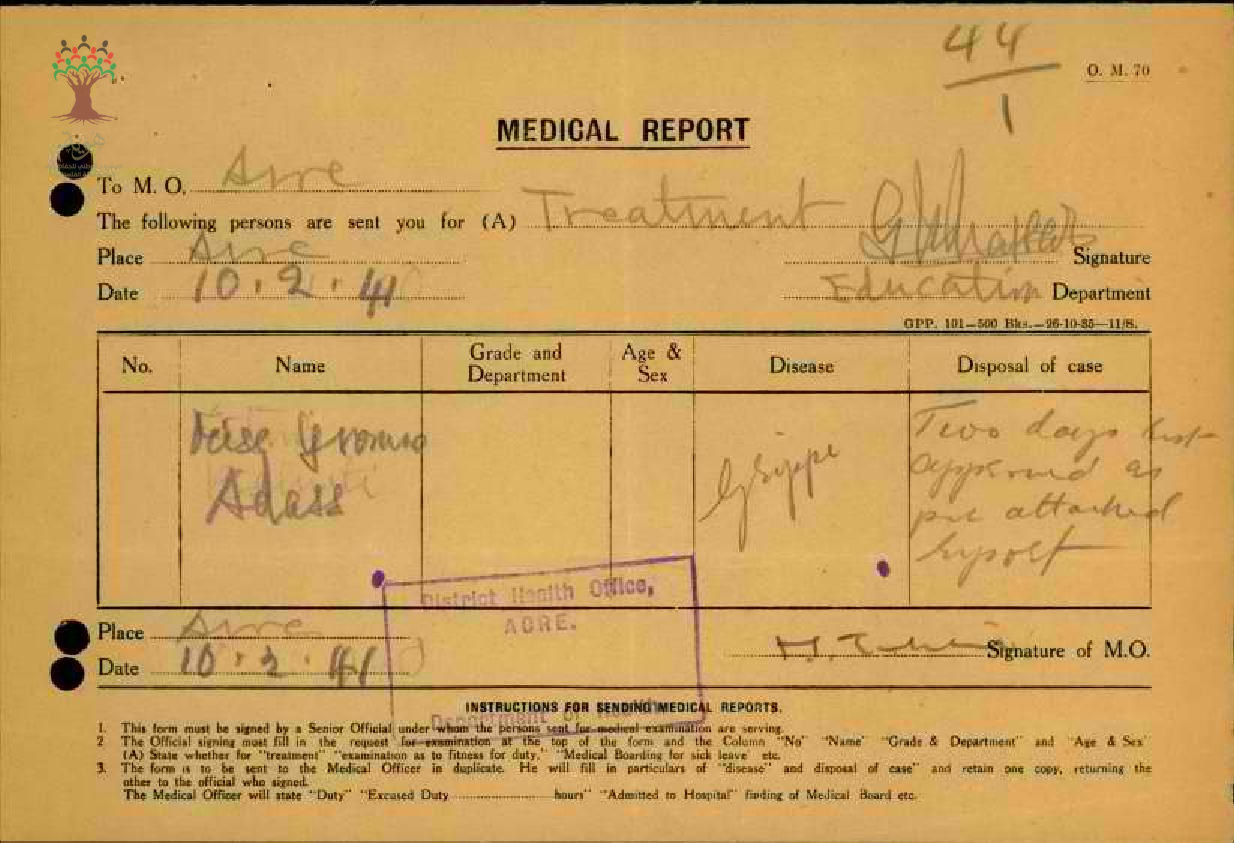 44
1
O. M. 70
MEDICAL REPORT
To M. O. Acre
The following persons are sent you for (A) Treatment
Place Acre
Signature
Date 10.2.41
Education Department
GPP. 101—500 Bks.—26-10-35—11/S.
No. Name Grade and Department Age & Sex Disease Disposal of case
Adass
Grippe
Two days
approved as
per attached
report
District Health Office,
ACRE.
Department of Health
Place Acre
Date 10.2.41
Signature of M.O.
INSTRUCTIONS FOR SENDING MEDICAL REPORTS.
1. This form must be signed by a Senior Official under whom the persons sent for medical examination are serving.
2 The Official signing must fill in the request for examination at the top of the form and the Column "No" "Name" "Grade & Department" and "Age & Sex"
(A) State whether for "treatment" "examination as to fitness for duty," "Medical Boarding for sick leave" etc.
3. The form is to be sent to the Medical Officer in duplicate. He will fill in particulars of "disease" and disposal of case" and retain one copy, returning the
other to the official who signed.
The Medical Officer will state "Duty" "Excused Duty ........................ hours" "Admitted to Hospital" finding of Medical Board etc.